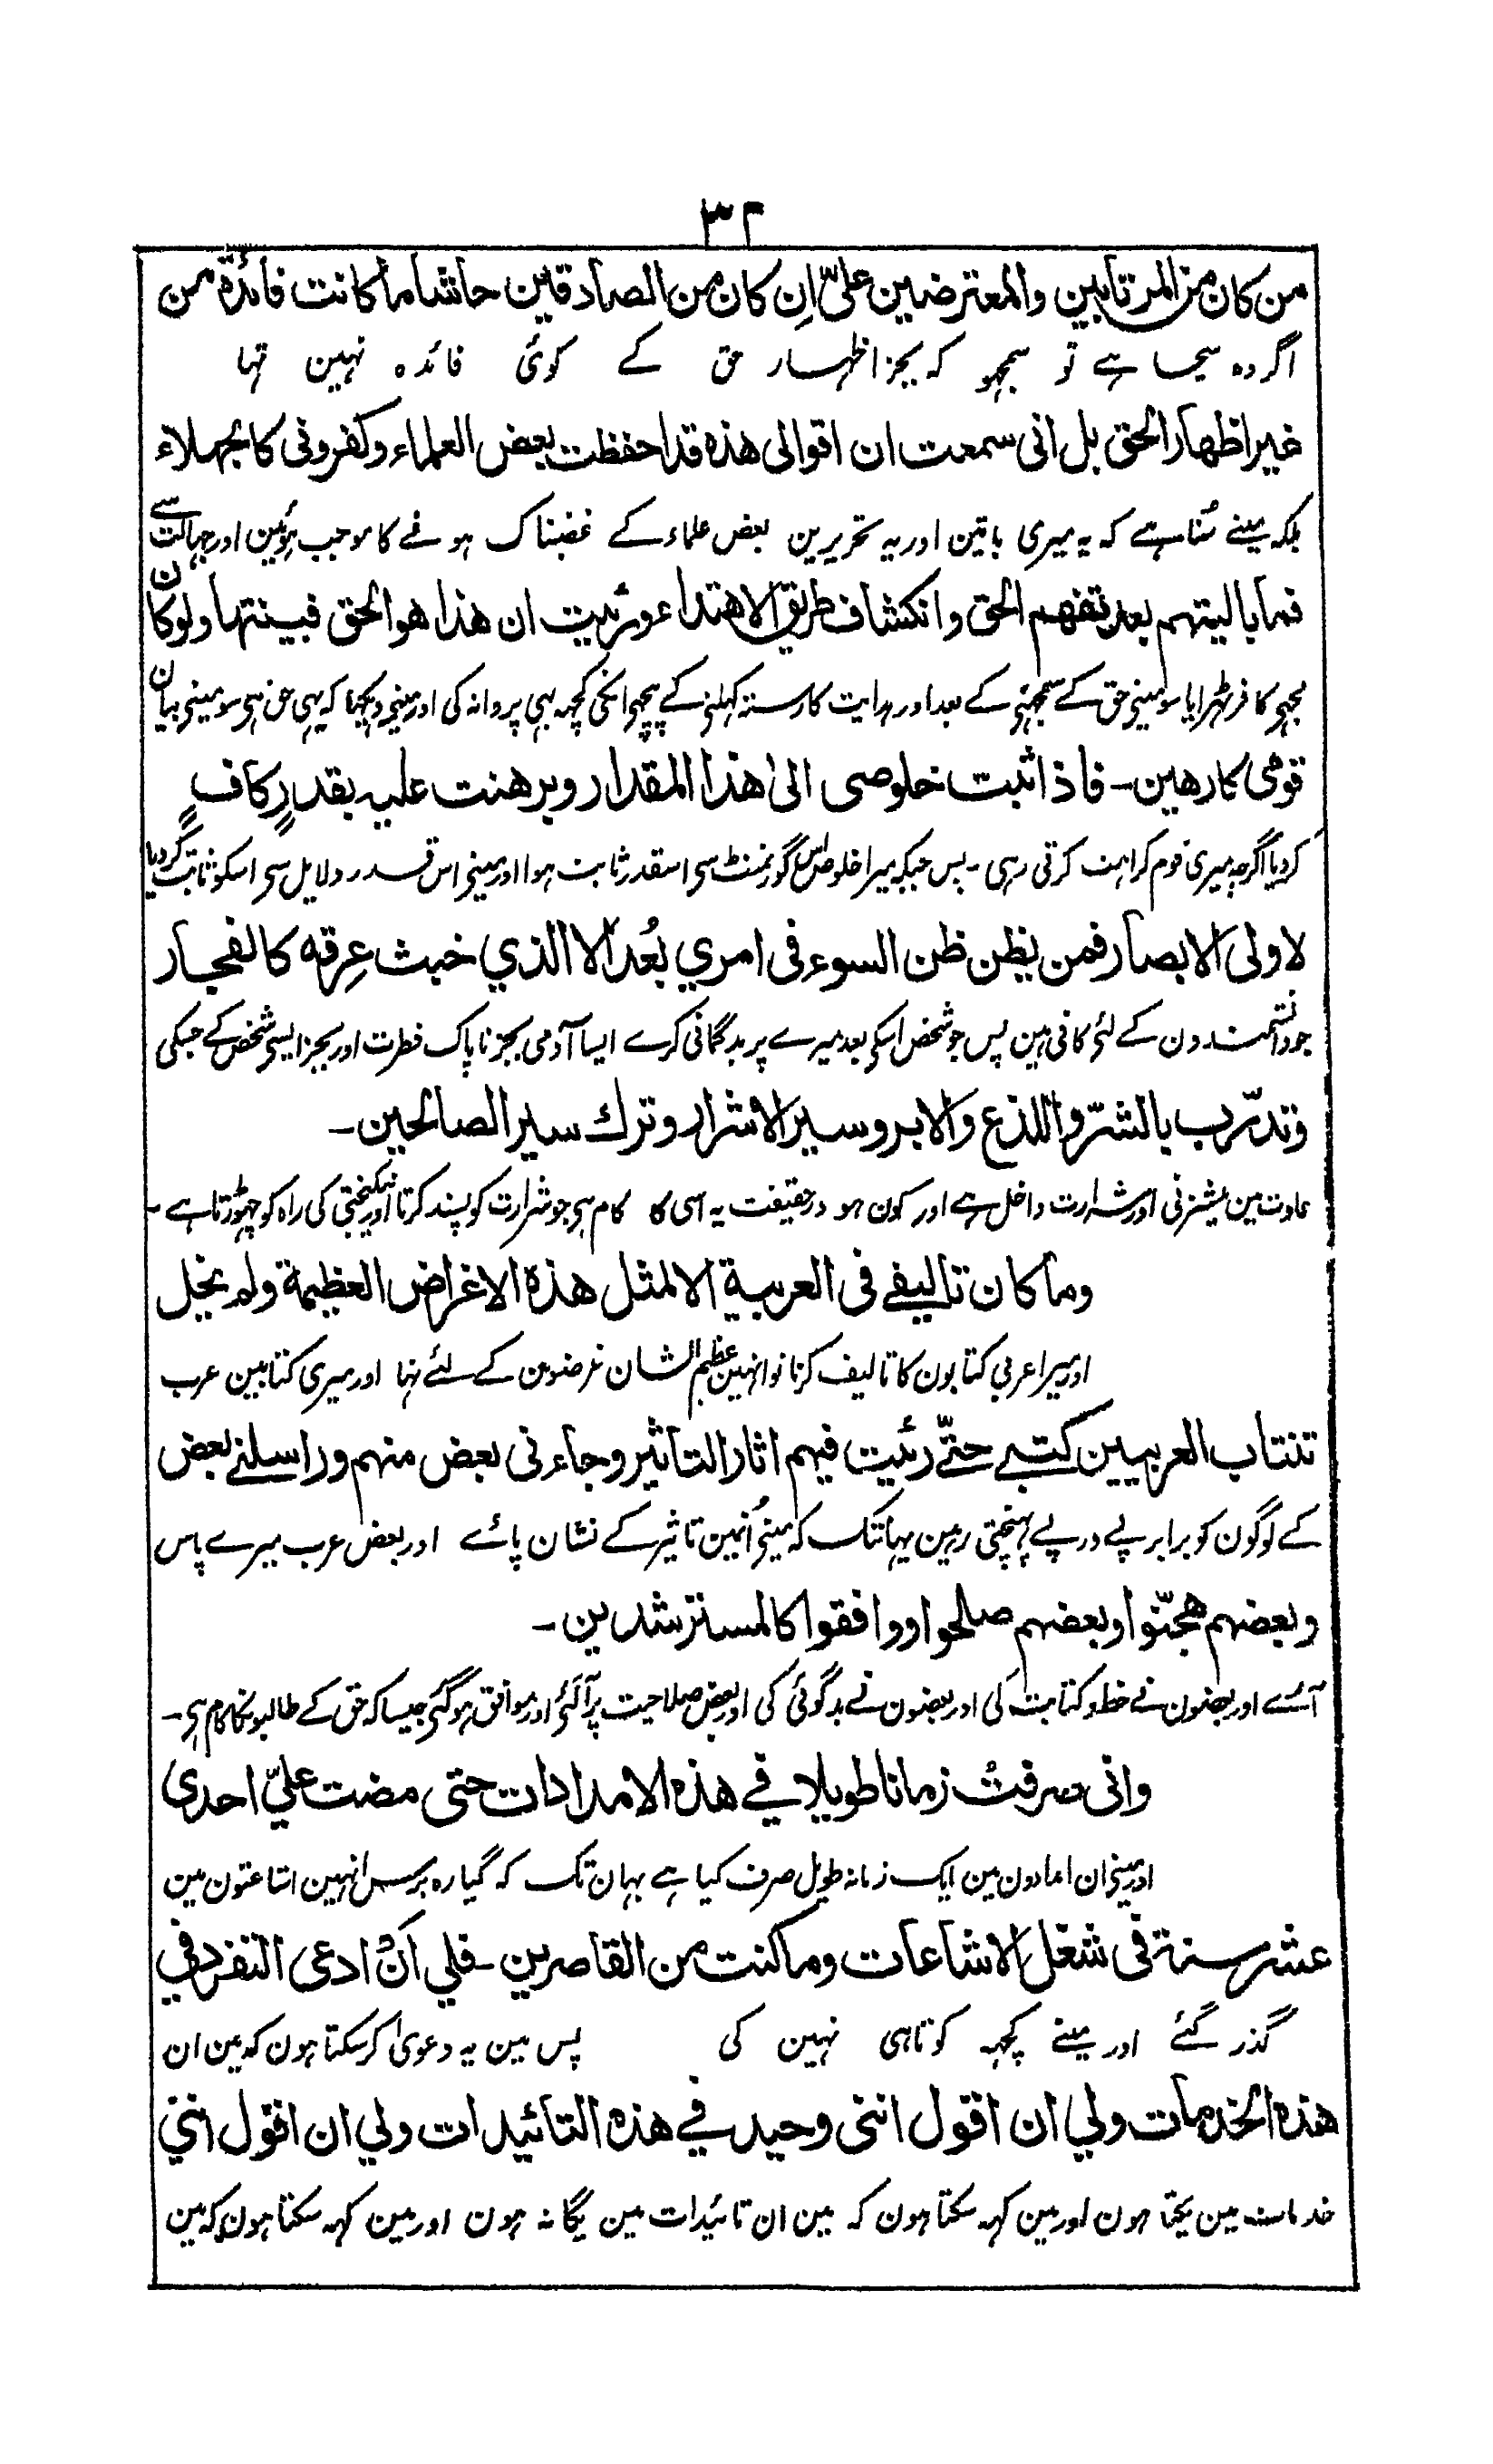 ٣٢
من كان من المرتابين والمعترضين علىّ اِن كان من الصادقين حاشا ما كانت فائدة من
اگر وہ سچا ہے تو سمجھو کہ بجز اظہار حق کے کوئی فائدہ نہین تہا
غير اظهار الحق بل انى سمعت ان اقوالى هذه قد احفظت بعض العلماء وكفرونى كالجهلاء
بلکہ مینے سُنا ہے کہ یہ میری باتین اور یہ تحریرین بعض علماء کے غضبناک ہونے کا موجب ہوئین اور جہالت سے
فما باليتهم بعد تفهم الحق وانكشاف طريق الاهتداء ورئيت ان هذا هو الحق فبينتها ولو كان
مجہے کافر ٹہرایا سو مینے حق کے سمجہنے کے بعد اور ہدایت کا رستہ کہلنے کے پیچہے انکی کچہہ بہی پروا نہ کی اور مینے دیکہا کہ یہی حق ہے سو مینے بیان
قومى كارهين۔ فاذا ثبت خلوصى الىٰ هذا المقدار وبرهنت عليه بقدرٍ كافٍ
کردیا اگرچہ میری قوم کراہت کرتی رہی۔ پس جبکہ میرا خلوص اس گورنمنٹ سے اسقدر ثابت ہوا اور مینے اس قدر دلایل سے اسکو ثابت کردیا
لاولى الابصار فمن يظن ظن السوء فى امري بعُد الا الذي خبث عِرقه كالفجار
جو دانشمندون کے لئے کافی ہین پس جو شخص اسکے بعد میرے پر بدگمانی کرے ایسا آدمی بجز ناپاک فطرت اور بجز ایسے شخص کے جسکی
وتدرّب بالشرّ واللذع والابر وسير الاشرار وترك سير الصالحين۔
عادت مین نیشزنی اور شرارت داخل ہے اور کون ہو درحقیقت یہ اسی کا کام ہے جو شرارت کو پسند کرتا اور نیکبختی کی راہ کو چہوڑتا ہے۔
وما كان تاليفے فى العربية الا لمثل هذه الاغراض العظيمة ولم يخل
اور میرا عربی کتابون کا تالیف کرنا تو انہین عظیم الشان غرضون کے لئے تہا اور میری کتابین عرب
تنتاب العربيين كتبے حتّے رئيت فيهم اثار التاثير وجاءنى بعض منهم وراسلنے بعض
کے لوگون کو برابر پے درپے پہنچتی رہین یہانتک کہ مینے اُنہین تاثیر کے نشان پائے اور بعض عرب میرے پاس
وبعضهم هجّنوا وبعضهم صلحوا ووافقوا كالمسترشدين۔
آئے اور بعضون نے خط و کتابت کی اور بعضون نے بدگوئی کی اور بعض صلاحیت پر آگئے اور موافق ہوگئے جیسا کہ حق کے طالبونکا کام ہے۔
وانى صرفتُ زمانا طويلا في هذه الامدادات حتى مضت عليّ احدى
اور مینے ان امدادون مین ایک زمانہ طویل صرف کیا ہے یہان تک کہ گیارہ برس انہین اشاعتون مین
عشر سنة فى شغل الاشاعات وما كنت من القاصرين۔ فلي اَنْ ادعى التفرد في
گذر گئے اور مینے کچہہ کوتاہی نہین کی پس مین یہ دعویٰ کرسکتا ہون کہ مین ان
هذه الخدمات ولي ان اقول اننى وحيد في هذه التائيدات ولي ان اقول اننى
خدمات مین یکتا ہون اور مین کہہ سکتا ہون کہ مین ان تائیدات مین یگانہ ہون اور مین کہہ سکتا ہون کہ مین